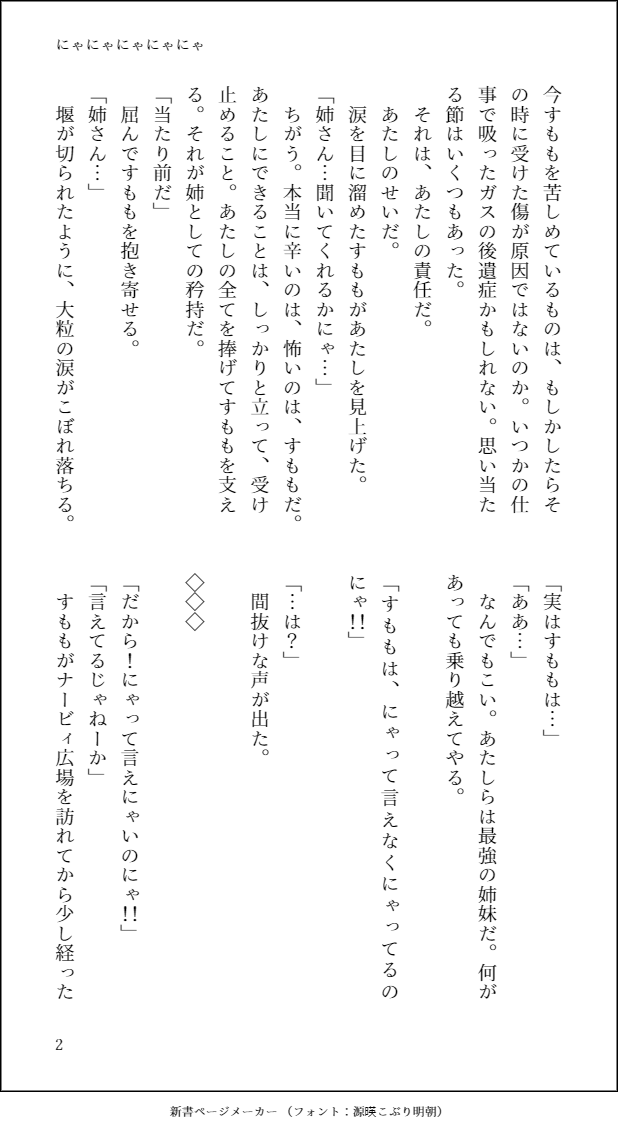 にゃにゃにゃにゃにゃ
今すももを苦しめているものは、もしかしたらそ
の時に受けた傷が原因ではないのか。いつかの仕
事で吸ったガスの後遺症かもしれない。思い当た
る節はいくつもあった。
それは、あたしの責任だ。
あたしのせいだ。
涙を目に溜めたすももがあたしを見上げた。
「姉さん…聞いてくれるかにゃ…」
ちがう。本当に辛いのは、怖いのは、すももだ。
あたしにできることは、しっかりと立って、受け
止めること。あたしの全てを捧げてすももを支え
る。それが姉としての矜持だ。
「当たり前だ」
屈んですももを抱き寄せる。
「姉さん…」
堰が切られたように、大粒の涙がこぼれ落ちる。
「実はすももは…」
「ああ…」
なんでもこい。あたしらは最強の姉妹だ。何が
あっても乗り越えてやる。
「すももは、にゃって言えなくにゃってるの
にゃ!!」
「…は？」
間抜けな声が出た。
◇◇◇
「だから！にゃって言えにゃいのにゃ!!」
「言えてるじゃねーか」
すももがナービィ広場を訪れてから少し経った
2
新書ページメーカー（フォント：源暎こぶり明朝）